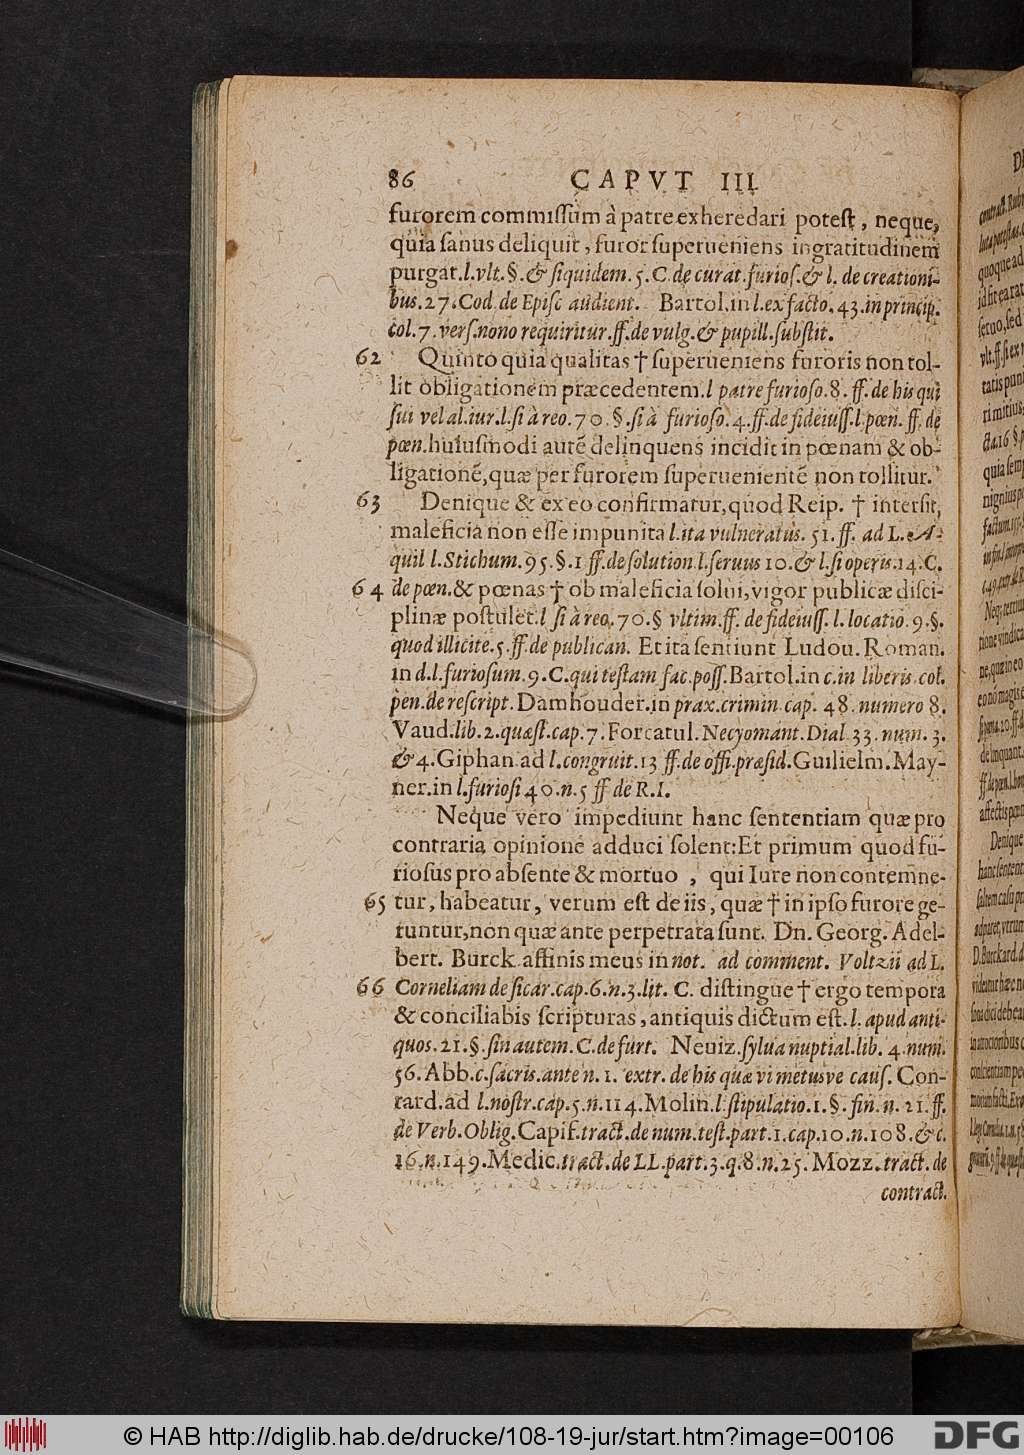 86 CAPVT III.
furorem commissum à patre exheredari potest, neque,
quia sanus deliquit, furor superueniens ingratitudinem
purgat. l. vlt. §. & siquidem. 5. C. de curat. furios. & l. de creationi-
bus. 27. Cod. de Episc audient. Bartol. in l. ex facto. 43. in princip.
col. 7. vers. nono requiritur. ff. de vulg. & pupill. substit.
62 Quinto quia qualitas † superueniens furoris non tol-
lit obligationem præcedentem. l patre furioso. 8. ff. de his qui
sui vel al. iur. l. si à reo. 70. §. si à furioso. 4. ff. de fideiuss. l. pœn. ff. de
pœn. huiusmodi autē delinquens incidit in pœnam & ob-
ligationē, quæ per furorem superuenientē non tollitur.
63 Denique & ex eo confirmatur, quod Reip. † intersit,
maleficia non esse impunita l. ita vulneratus. 51. ff. ad L. A-
quil l. Stichum. 95. §. 1 ff. de solution l. seruus 10. & l. si operis. 14. C.
64 de pœn. & pœnas † ob maleficia solui, vigor publicæ disci-
plinæ postulet. l si à reo. 70. § vltim. ff. de fideiuss. l. locatio. 9. §.
quod illicite. 5. ff. de publican. Et ita sentiunt Ludou. Roman.
in d. l. furiosum. 9. C. qui testam fac. poss. Bartol. in c. in liberis col.
pen. de rescript. Damhouder. in prax. crimin cap. 48. numero 8.
Vaud. lib. 2. quæst. cap. 7. Forcatul. Necyomant. Dial 33. num. 3.
& 4. Giphan ad l. congruit. 13 ff. de offi. præsid. Guilielm. May-
ner. in l. furiosi 40. n. 5 ff de R. I.
Neque vero impediunt hanc sententiam quæ pro
contraria opinione adduci solent: Et primum quod fu-
riosus pro absente & mortuo, qui Iure non contemne-
65 tur, habeatur, verum est de iis, quæ † in ipso furore ge-
runtur, non quæ ante perpetrata sunt. Dn. Georg. Adel-
bert. Burck affinis meus in not. ad comment. Voltzii ad L.
66 Corneliam de sicar. cap. 6. n. 3. lit. C. distingue † ergo tempora
& conciliabis scripturas, antiquis dictum est. l. apud anti-
quos. 21. §. sin autem. C. de furt. Neuiz. sylua nuptial. lib. 4. num.
56. Abb. c. sacris. ante n. 1. extr. de his quæ vi metusve caus. Con-
rard. ad l. nostr. cap. 5. n. 114. Molin. l stipulatio. 1. §. fin. n. 21. ff.
de Verb. Oblig. Capif. tract. de num. test. part. 1. cap. 10. n. 108. & c.
16. n. 149. Medic. tract. de LL. part. 3. q. 8. n. 25. Mozz. tract. de
contract.
© HAB http://diglib.hab.de/drucke/108-19-jur/start.htm?image=00106
DFG